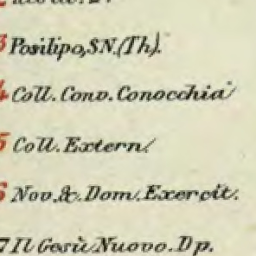 3 Posilipo, S.N.(Th).
4 Coll. Conv. Conocchia
5 Coll. Extern.
6 Nov. & Dom. Exercit.
7 Il Gesù Nuovo. Dp.